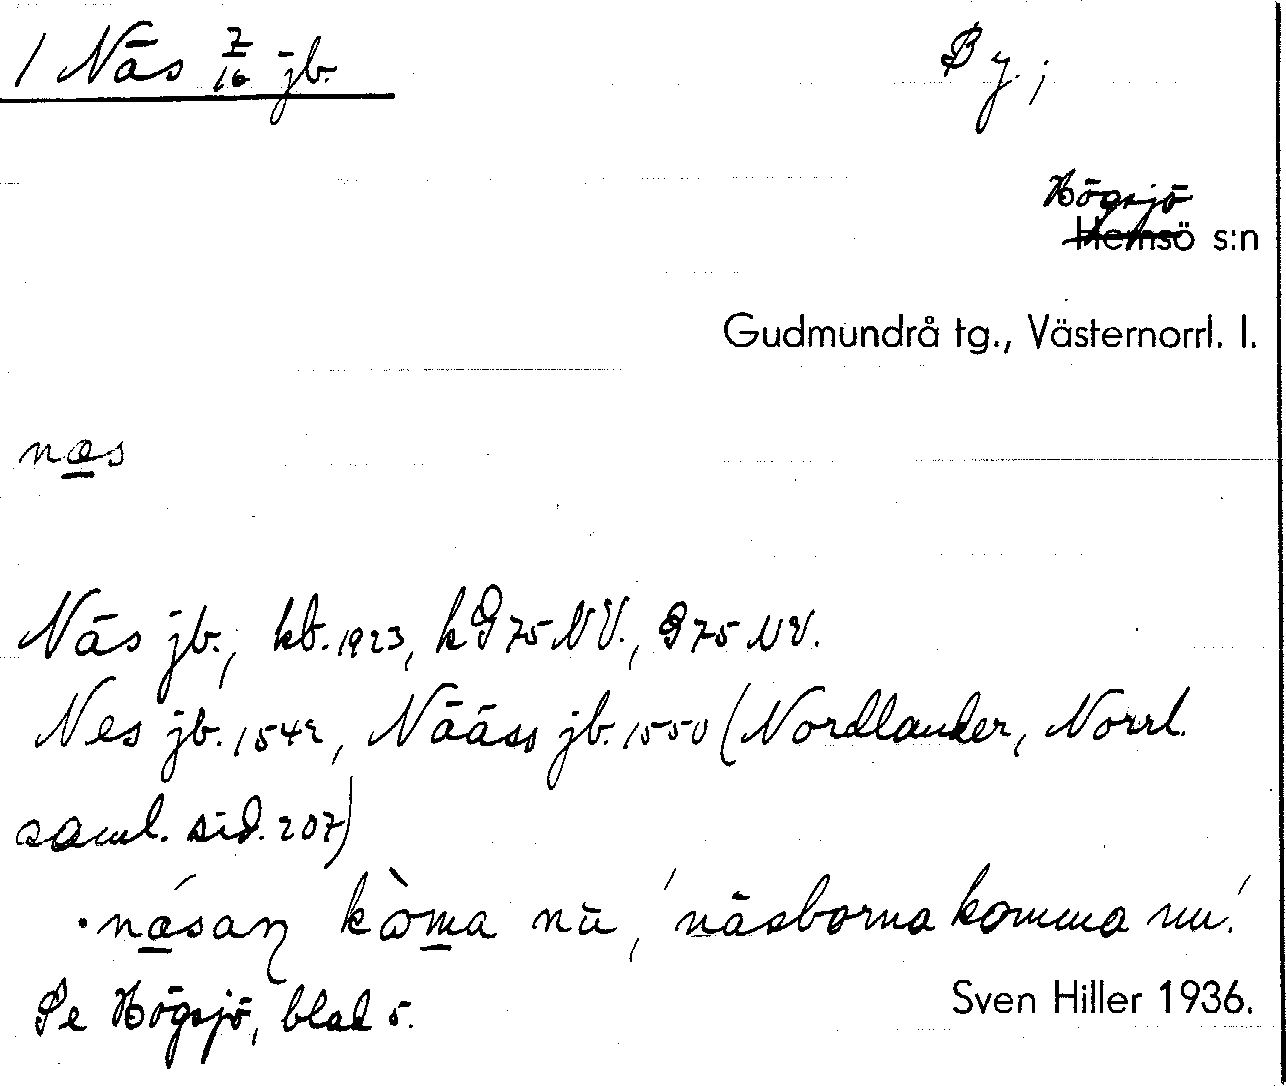 1 Näs 7/16 jb. By;
Högsjö
Hemsö s:n
Gudmundrå tg., Västernorrl. l.
næs
Näs jb., kb. 1923, kG 75 NV., G 75 NV.
Nes jb. 1542, Nääss jb. 1550 (Nordlander, Norrl.
saml. sid. 207)
næsaɳ kòma nū, 'näsborna komma nu'.
Se Högsjö, blad 5.
Sven Hiller 1936.